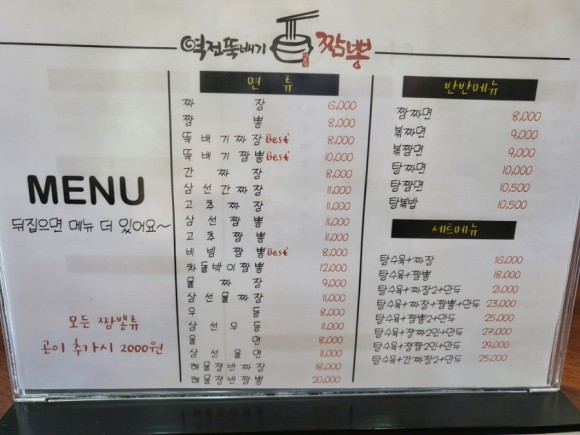 역전뚝배기 짬뽕
면 류
짜 장 6,000
짬 뽕 8,000
뚝 배 기 짜 장 Best 8,000
뚝 배 기 짬 뽕 Best 10,000
간 짜 장 8,000
삼 선 간 짜 장 11,000
고 추 짜 장 11,000
삼 선 짬 뽕 11,000
고 추 짬 뽕 11,000
비 빔 짬 뽕 Best 8,000
차 돌 박 이 짬 뽕 12,000
물 짜 장 9,000
삼 선 물 짜 장 11,000
우 동 8,000
삼 선 우 동 11,000
울 면 8,000
삼 선 울 면 11,000
해 물 쟁 반 짜 장 18,000
해 물 쟁 반 짬 뽕 20,000
반반메뉴
짬짜면 8,000
볶짜면 9,000
볶짬면 9,000
탕짜면 10,000
탕짬면 10,500
탕볶밥 10,500
세트메뉴
탕수육+짜장 16,000
탕수육+짬뽕 18,000
탕수육+짜장2+만두 21,000
탕수육+짜장+짬뽕+만두 23,000
탕수육+짬뽕2+만두 25,000
탕수육+쟁짜2인+만두 27,000
탕수육+쟁짬2인+만두 29,000
탕수육+간짜장2+만두 25,000
MENU
뒤집으면 메뉴 더 있어요~
모든 짬뽕류
곤이 추가시 2000원